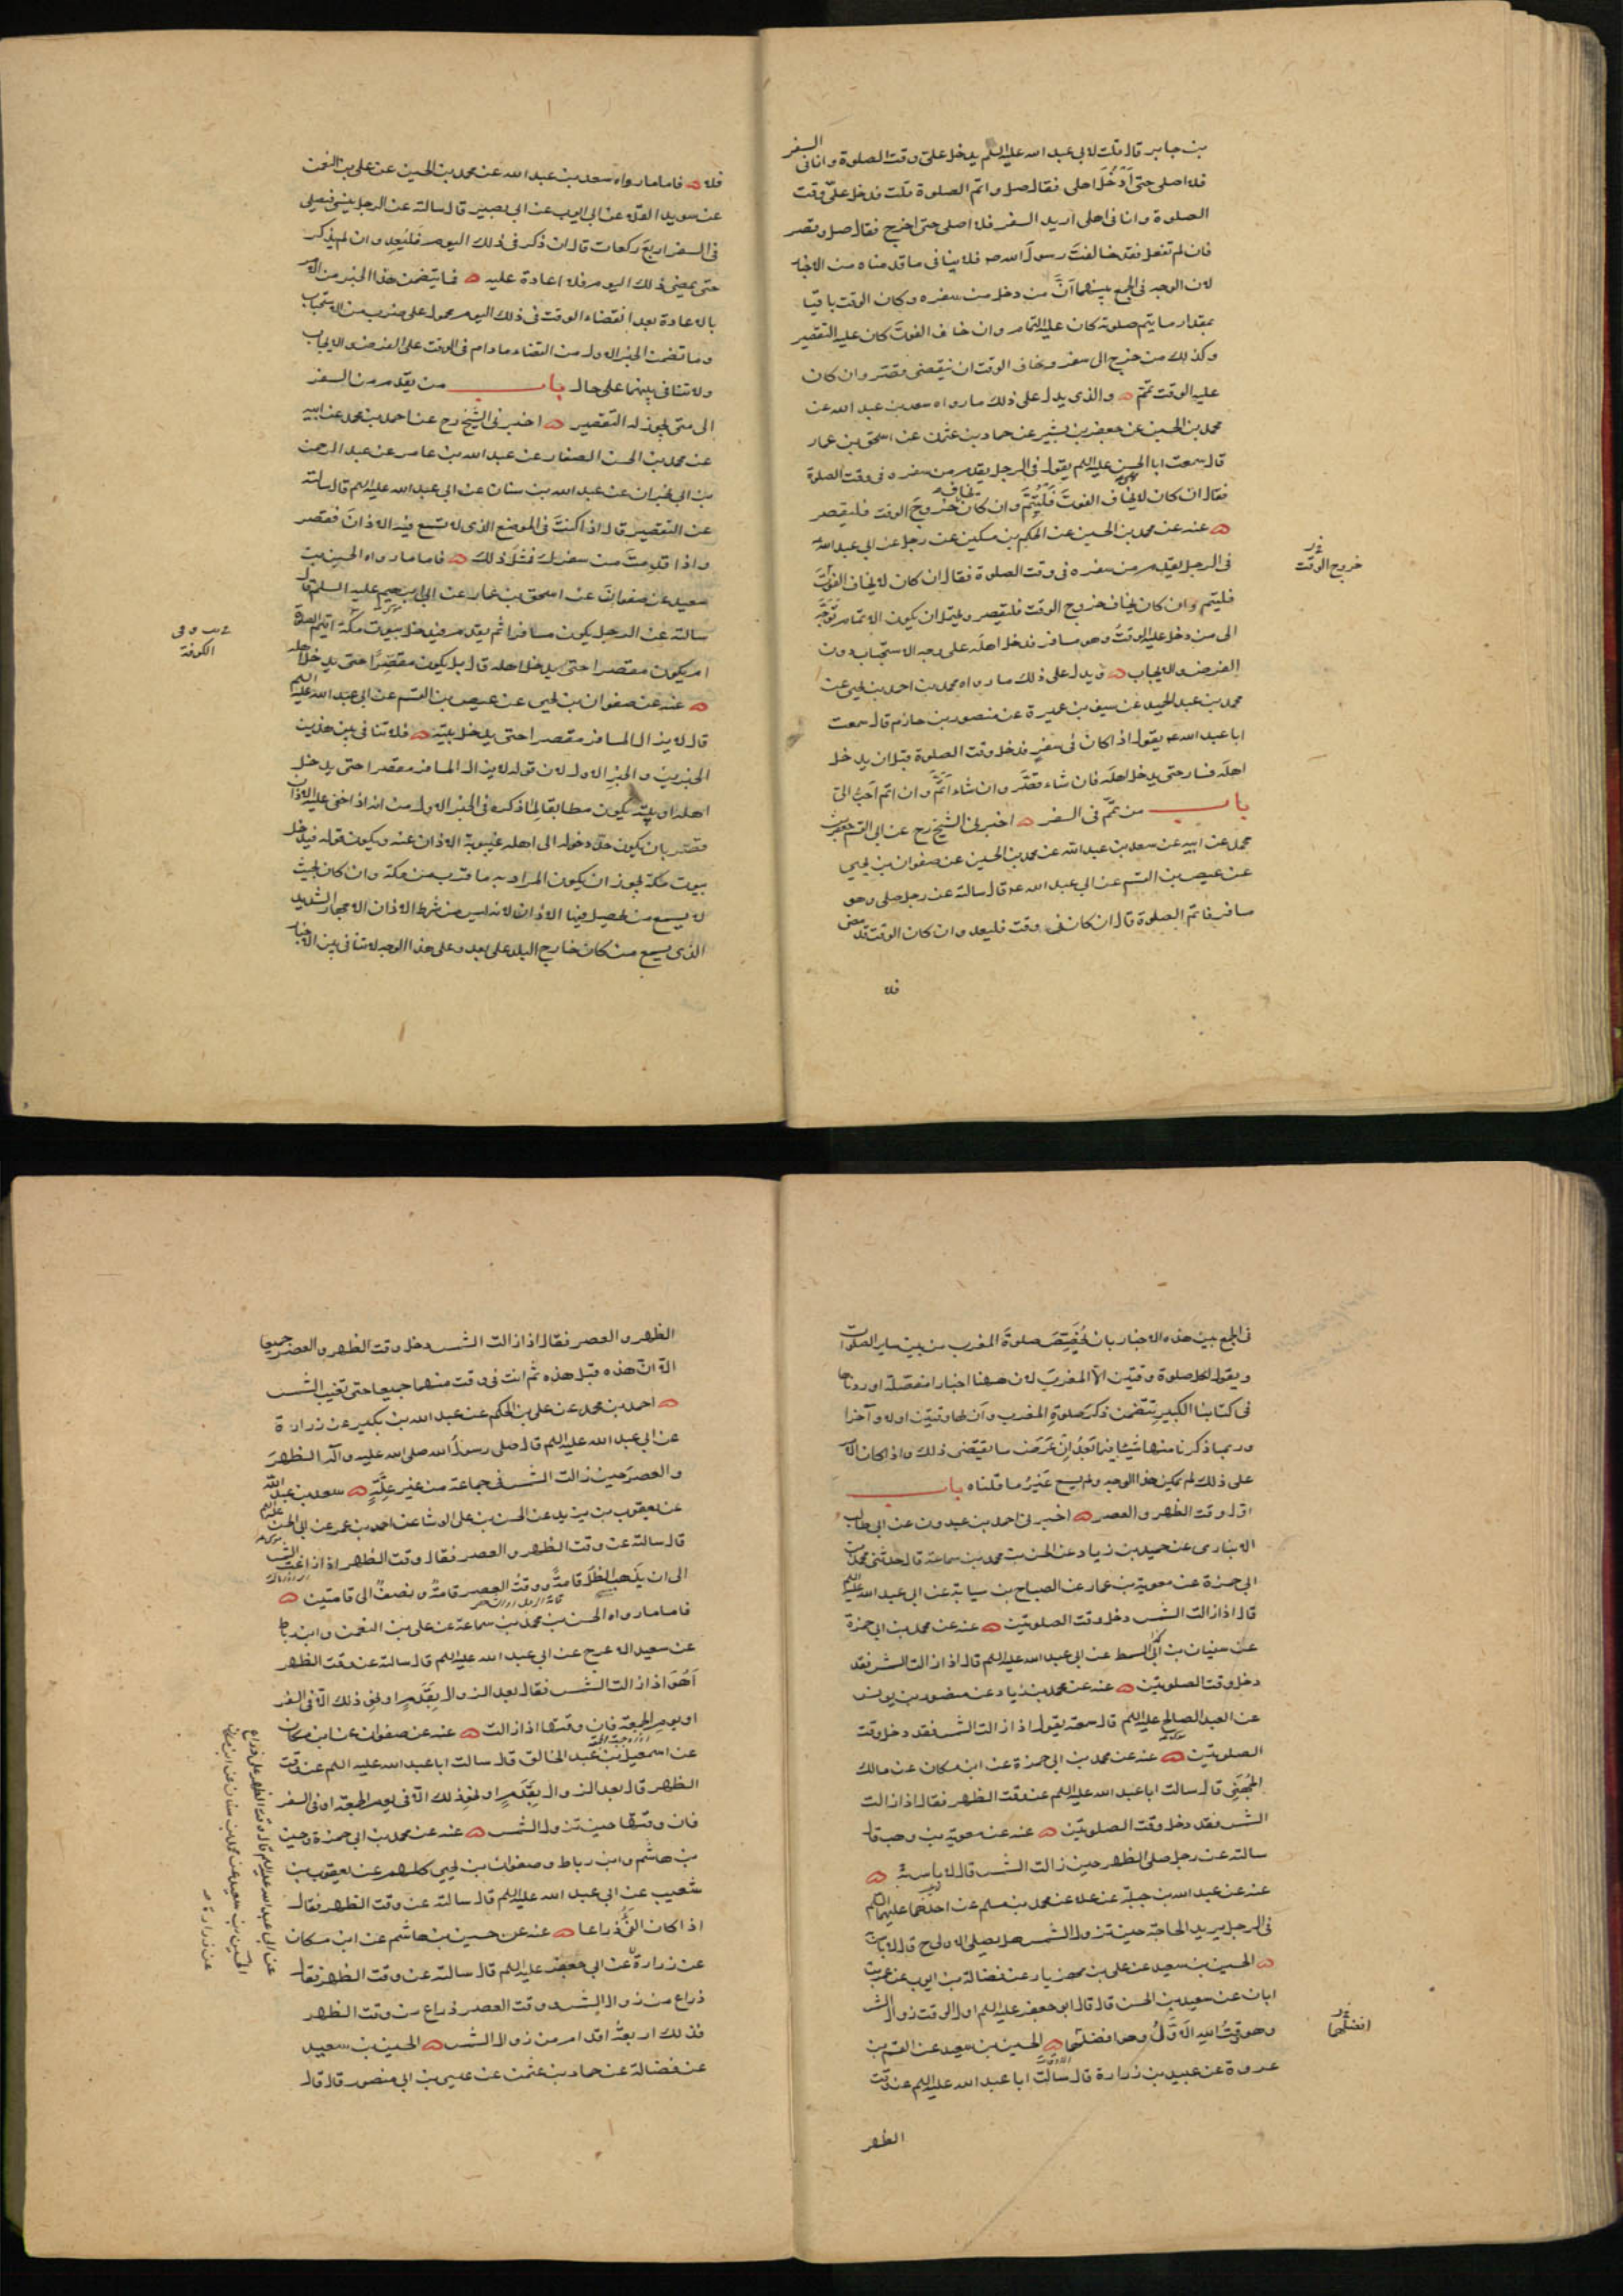 بن جابر قال قلت لابى عبد الله عليه السلم يدخل علىّ وقت الصلوة وانا فى السفر
فلا اصلى حتى اَدْخُلَ اهلى فقال صل واتم الصلوة قلت فدخل علىّ وقت
الصلوة وانا فى اهلى اريد السفر فلا اصلى حتى اخرج فقال صل وقصر
فان لم تفعل فقد خالفتَ رسولَ الله ص فلا ينافى ما قدمناه من الاخبار
لان الوجه فى الجمع بينهما اَنَّ من دخل من سفره وكان الوقت باقيا
بمقدار ما يتم صلوته كان عليه التمام وان خاف الفوتَ كان عليه التقصير
وكذلك من خرج الى سفر ويخاف الوقت ان ينقضى قصّر وان كان
عليه الوقت تمّم والذى يدل على ذلك ما رواه سعد بن عبد الله عن
محمد بن الحسين عن جعفر بن بشير عن حماد بن عثمن عن اسحق بن عمار
قال سمعت ابا الحسن عليه السلم يقول فى الرجل يقدم من سفره فى وقت الصلوة
فقال ان كان لا يخاف الفوتَ فَلْيُتِمَّ وان كان يخاف خروجَ الوقت فليقصر
عنه عن محمد بن الحسين عن الحكم بن مسكين عن رجل عن ابى عبد الله ع
فى الرجل يقدم من سفره فى وقت الصلوة فقال ان كان لا يخاف الفوتَ
خروج الوقت
فليتم وان كان يخاف خروج الوقت فليقصر ويحتمل ان يكون الاتمام توجّه
الى من دخل عليه الوقتُ وهو مسافر فدخل اهلَه على وجه الاستحباب دون
الفرض والايجاب ويدل على ذلك ما رواه محمد بن احمد بن يحيى عن
محمد بن عبد الحميد عن سيف بن عميرة عن منصور بن حازم قال سمعت
ابا عبد الله ع يقول اذا كان فى سفرٍ فدخل وقت الصلوة قبل ان يدخل
اهلَه فسار حتى يدخل اهلَه فان شاء قصّر وان شاء اَتمَّ وان اتم اَحبُّ الىّ
باب من تمّم فى السفر اخبرنى الشيخ رح عن ابى القسم جعفر بن
محمد عن ابيه عن سعد بن عبد الله عن محمد بن الحسين عن صفوان بن يحيى
عن عيص بن القسم عن ابى عبد الله ع قال سالته عن رجل صلى وهو
مسافر فاتم الصلوة قال ان كان فى وقت فليعد وان كان الوقت قد مضى
فلا
فلا فاما ما رواه سعد بن عبد الله عن محمد بن الحسين عن على بن النعمن
عن سويد القلا عن ابى ايوب عن ابى بصير قال سالته عن الرجل ينسى فيصلى
فى السفر اربعَ ركعات قال ان ذكر فى ذلك اليوم فليُعِد وان لم يذكر
حتى يمضى ذلك اليوم فلا اعادة عليه فما يتضمن هذا الخبر من الامر
بالاعادة بعد انقضاء الوقت فى ذلك اليوم محمول على ضرب من الاستحباب
وما تضمن الخبر الاول من القضاء ما دام فى الوقت على الفرض والايجاب
ولا تنافى بينهما على حال باب من يقدم من السفر
الى متى يجوز له التقصير اخبرنى الشيخ رح عن احمد بن محمد عن ابيه
عن محمد بن الحسن الصفار عن عبد الله بن عامر عن عبد الرحمن
بن ابى نجران عن عبد الله بن سنان عن ابى عبد الله عليه السلم قال سالته
عن التقصير قال اذا كنتَ فى الموضع الذى لا تسمع فيه الاذانَ فقصر
واذا قدِمتَ من سفرك فمثلَ ذلك فاما ما رواه الحسين بن
سعيد عن صفوانَ عن اسحق بن عمار عن ابى ابرهيم عليه السلم قال
سالته عن الرجل يكون مسافرا ثم يقدم فيدخل بيوت مكة ايتم الصلوة
الكوفة
ام يكون مقصرا حتى يدخل اهله قال بل يكون مقصِّرًا حتى يدخل اهله
عنه عن صفوان بن يحيى عن عيص بن القسم عن ابى عبد الله عليه السلم
قال لا يزال المسافر مقصرا حتى يدخل بيتَه فلا تنافى بين هذين
الخبرين والخبرِ الاول لان قوله لا يزال المسافر مقصرا حتى يدخل
اهله او بيته يكون مطابقا لما ذكره فى الخبر الاول من انه اذا خفى عليه الاذان
قصّر بان يكون حدّ دخوله الى اهله غيبوبة الاذان عنه ويكون قوله فيدخل
بيوت مكة يجوز ان يكون المراد به ما قرب من مكة وان كان بحيث
لا يسمع من يحصل فيها الاذان لانه ليس من شرط الاذان الاجهار الشديد
الذى يسمع من كان خارج البلد على بعد وعلى هذا الوجه لا تنافى بين الاخبار
فى الجمع بين هذه الاخبار بان نُخَصِّصَ صلوةَ المغرب من بين ساير الصلوات
ويقول لكل صلوة وقتين الاّ المغربَ لان ههنا اخبارا مفصّلة اوردناها
فى كتابنا الكبير يتضمن ذكرَ صلوةِ المغرب وأن لها وقتين اولا وآخرا
وربما ذكرنا منها شيئا فيما بَعدُ اِن عَرَضَ ما يقتضى ذلك واذا كان الامر
على ذلك لم يمكن هذا الوجه ولم يسع غيرُ ما قلناه باب
اول وقت الظهر والعصر اخبرنى احمد بن عبدون عن ابى طالب
الانبارى عن حميد بن زياد عن الحسن بن محمد بن سماعة قال حدثنى محمد بن
ابى حمزة عن معوية بن عمار عن الصباح بن سيابة عن ابى عبد الله عليه السلم
قال اذا زالت الشمس دخل وقت الصلوتين عنه عن محمد بن ابى حمزة
عن سفيان بن السمط عن ابى عبد الله عليه السلم قال اذا زالت الشمس فقد
دخل وقت الصلوتين عنه عن محمد بن زياد عن منصور بن يونس
عن العبد الصالح عليه السلم قال سمعته يقول اذا زالت الشمس فقد دخل وقت
الصلوتين عنه عن محمد بن ابى حمزة عن ابن مسكان عن مالك
الجُهَنِى قال سالت ابا عبد الله عليه السلم عن وقت الظهر فقال اذا زالت
الشمس فقد دخل وقت الصلوتين عنه عن معوية بن وهب قال
سالته عن رجل صلى الظهر حين زالت الشمس قال لا باس به
عنه عن عبد الله بن جبلة عن علا عن محمد بن مسلم عن احدهما عليهما السلم
فى الرجل يريد الحاجة حين تزول الشمس هل يصلى الاولى ح قال لا باس به
الحسين بن سعيد عن على بن مهزيار عن فضالة بن ايوب عن عمر بن
ابان عن سعيد بن الحسن قال قال ابو جعفر عليه السلم اول الوقت زوال الشمس
وهو وقتُ الله الاَوَّلُ وهو افضلهما الحسين بن سعيد عن القسم بن
افضلهما
عروة عن عبيد بن زرارة قال سالت ابا عبد الله عليه السلم عن وقت
الظهر
الظهر والعصر فقال اذا زالت الشمس دخل وقت الظهر والعصر جميعا
الا انّ هذه قبل هذه ثم انت فى وقت منهما جميعا حتى تغيب الشمس
احمد بن محمد عن على بن الحكم عن عبد الله بن بكير عن زرارة
عن ابى عبد الله عليه السلم قال صلى رسولُ الله صلى الله عليه وآله الظهرَ
والعصرَ حين زالت الشمس فى جماعة من غير عِلَّةٍ سعد بن عبد الله
عن يعقوب بن يزيد عن الحسن بن على الوشا عن احمد بن عمر عن ابى الحسن عليه السلم
قال سالته عن وقت الظهر والعصر فقال وقت الظهر اذا زاغت الشمس
الى ان يذهب الظلّ قامةً ووقتُ العصر قامةٌ ونصفٌ الى قامتين
فاما ما رواه الحسن بن محمد بن سماعة عن على بن النعمن وابن رباط
عن سعيد الاعرج عن ابى عبد الله عليه السلم قال سالته عن وقت الظهر
اَهُوَ اذا زالت الشمس فقال بعد الزوال بِقَدَمٍ او نحوِ ذلك الا فى السفر
او يوم الجمعة فان وقتها اذا زالت عنه عن صفوان عن ابن مسكان
عن اسمعيل بن عبد الخالق قال سالت ابا عبد الله عليه السلم عن وقت
الظهر قال بعد الزوال بِقَدَمٍ او نحوِ ذلك الا فى يوم الجمعة او فى السفر
فان وقتها حين تزول الشمس عنه عن محمد بن ابى حمزة وحسين
بن هاشم وابن رباط وصفوان بن يحيى كلهم عن يعقوب بن
شعيب عن ابى عبد الله عليه السلم قال سالته عن وقت الظهر فقال
اذا كان الفَىُّ ذراعا عنه عن حسين بن هاشم عن ابن مسكان
عن زرارة عن ابى جعفر عليه السلم قال سالته عن وقت الظهر فقال
ذراع من زوال الشمس ووقت العصر ذراع من وقت الظهر
فذلك اربعةُ اقدام من زوال الشمس الحسين بن سعيد
عن فضالة عن حماد بن عثمن عن عيسى بن ابى منصور قال قال
عن ابى عبد الله عليه السلم قال وقت الظهر على ذراع
الحسين بن سعيد عن محمد بن سنان عن ابن مسكان
عن زرارة